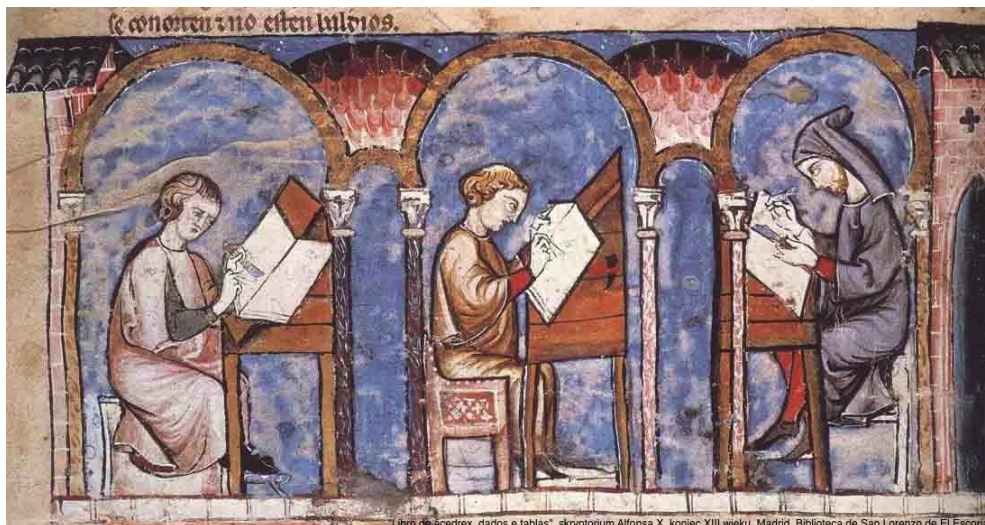 se conorten ⁊ no esten baldios.
"Libro de acedrex, dados e tablas", skryptorium Alfonsa X, koniec XIII wieku, Madrid, Biblioteca de San Lorenzo de El Escorial